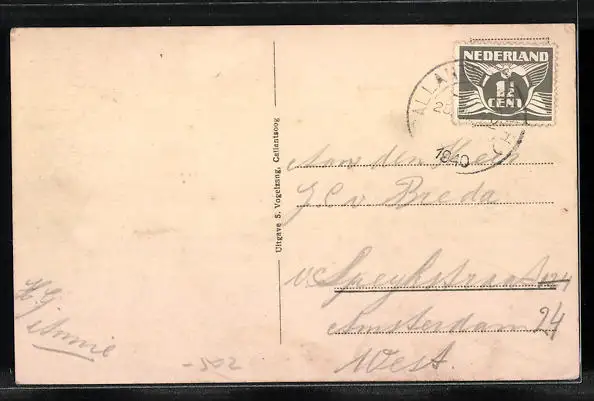 NEDERLAND
1½
CENT
1940
Uitgave S. Vogelzang, Callantsoog
Aan den Heer
v. Breda
v. Speykstraat
24
Amsterdam
West.
H.G.
Annie
-502